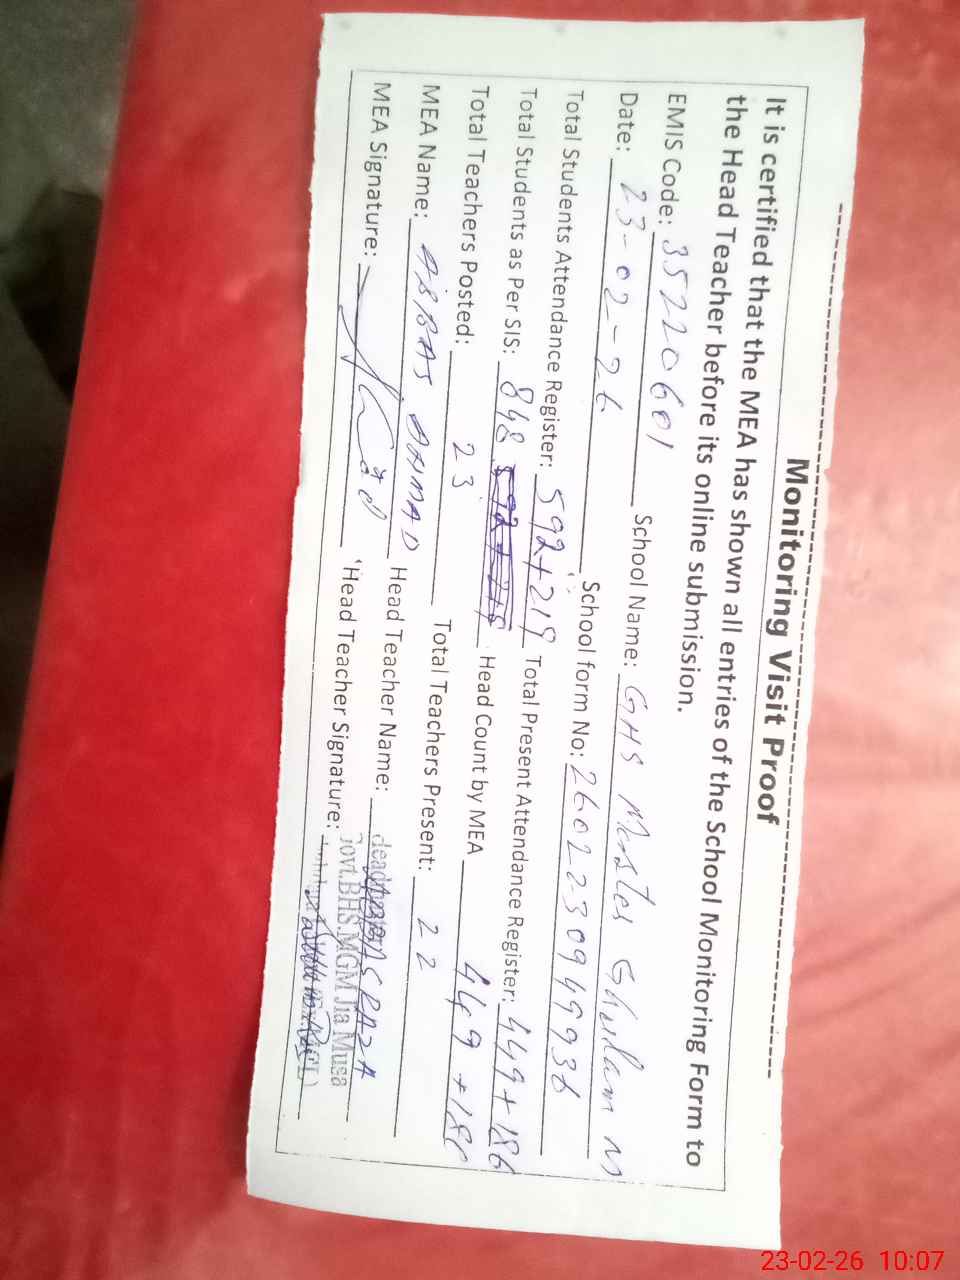 Monitoring Visit Proof
It is certified that the MEA has shown all entries of the School Monitoring Form to
the Head Teacher before its online submission.
EMIS Code: 35220601 School Name: GHS Master Ghulam M
Date: 23-02-26 School form No: 2602230949936
Total Students Attendance Register: 592+219 Total Present Attendance Register: 449+186
Total Students as Per SIS: 848 Head Count by MEA 449+186
Total Teachers Posted: 23 Total Teachers Present: 22
MEA Name: ABBAS AHMAD Head Teacher Name: ABBAS RAZA
MEA Signature: Head Teacher Signature:
Govt.BHS.MGM Jia Musa
23-02-26 10:07